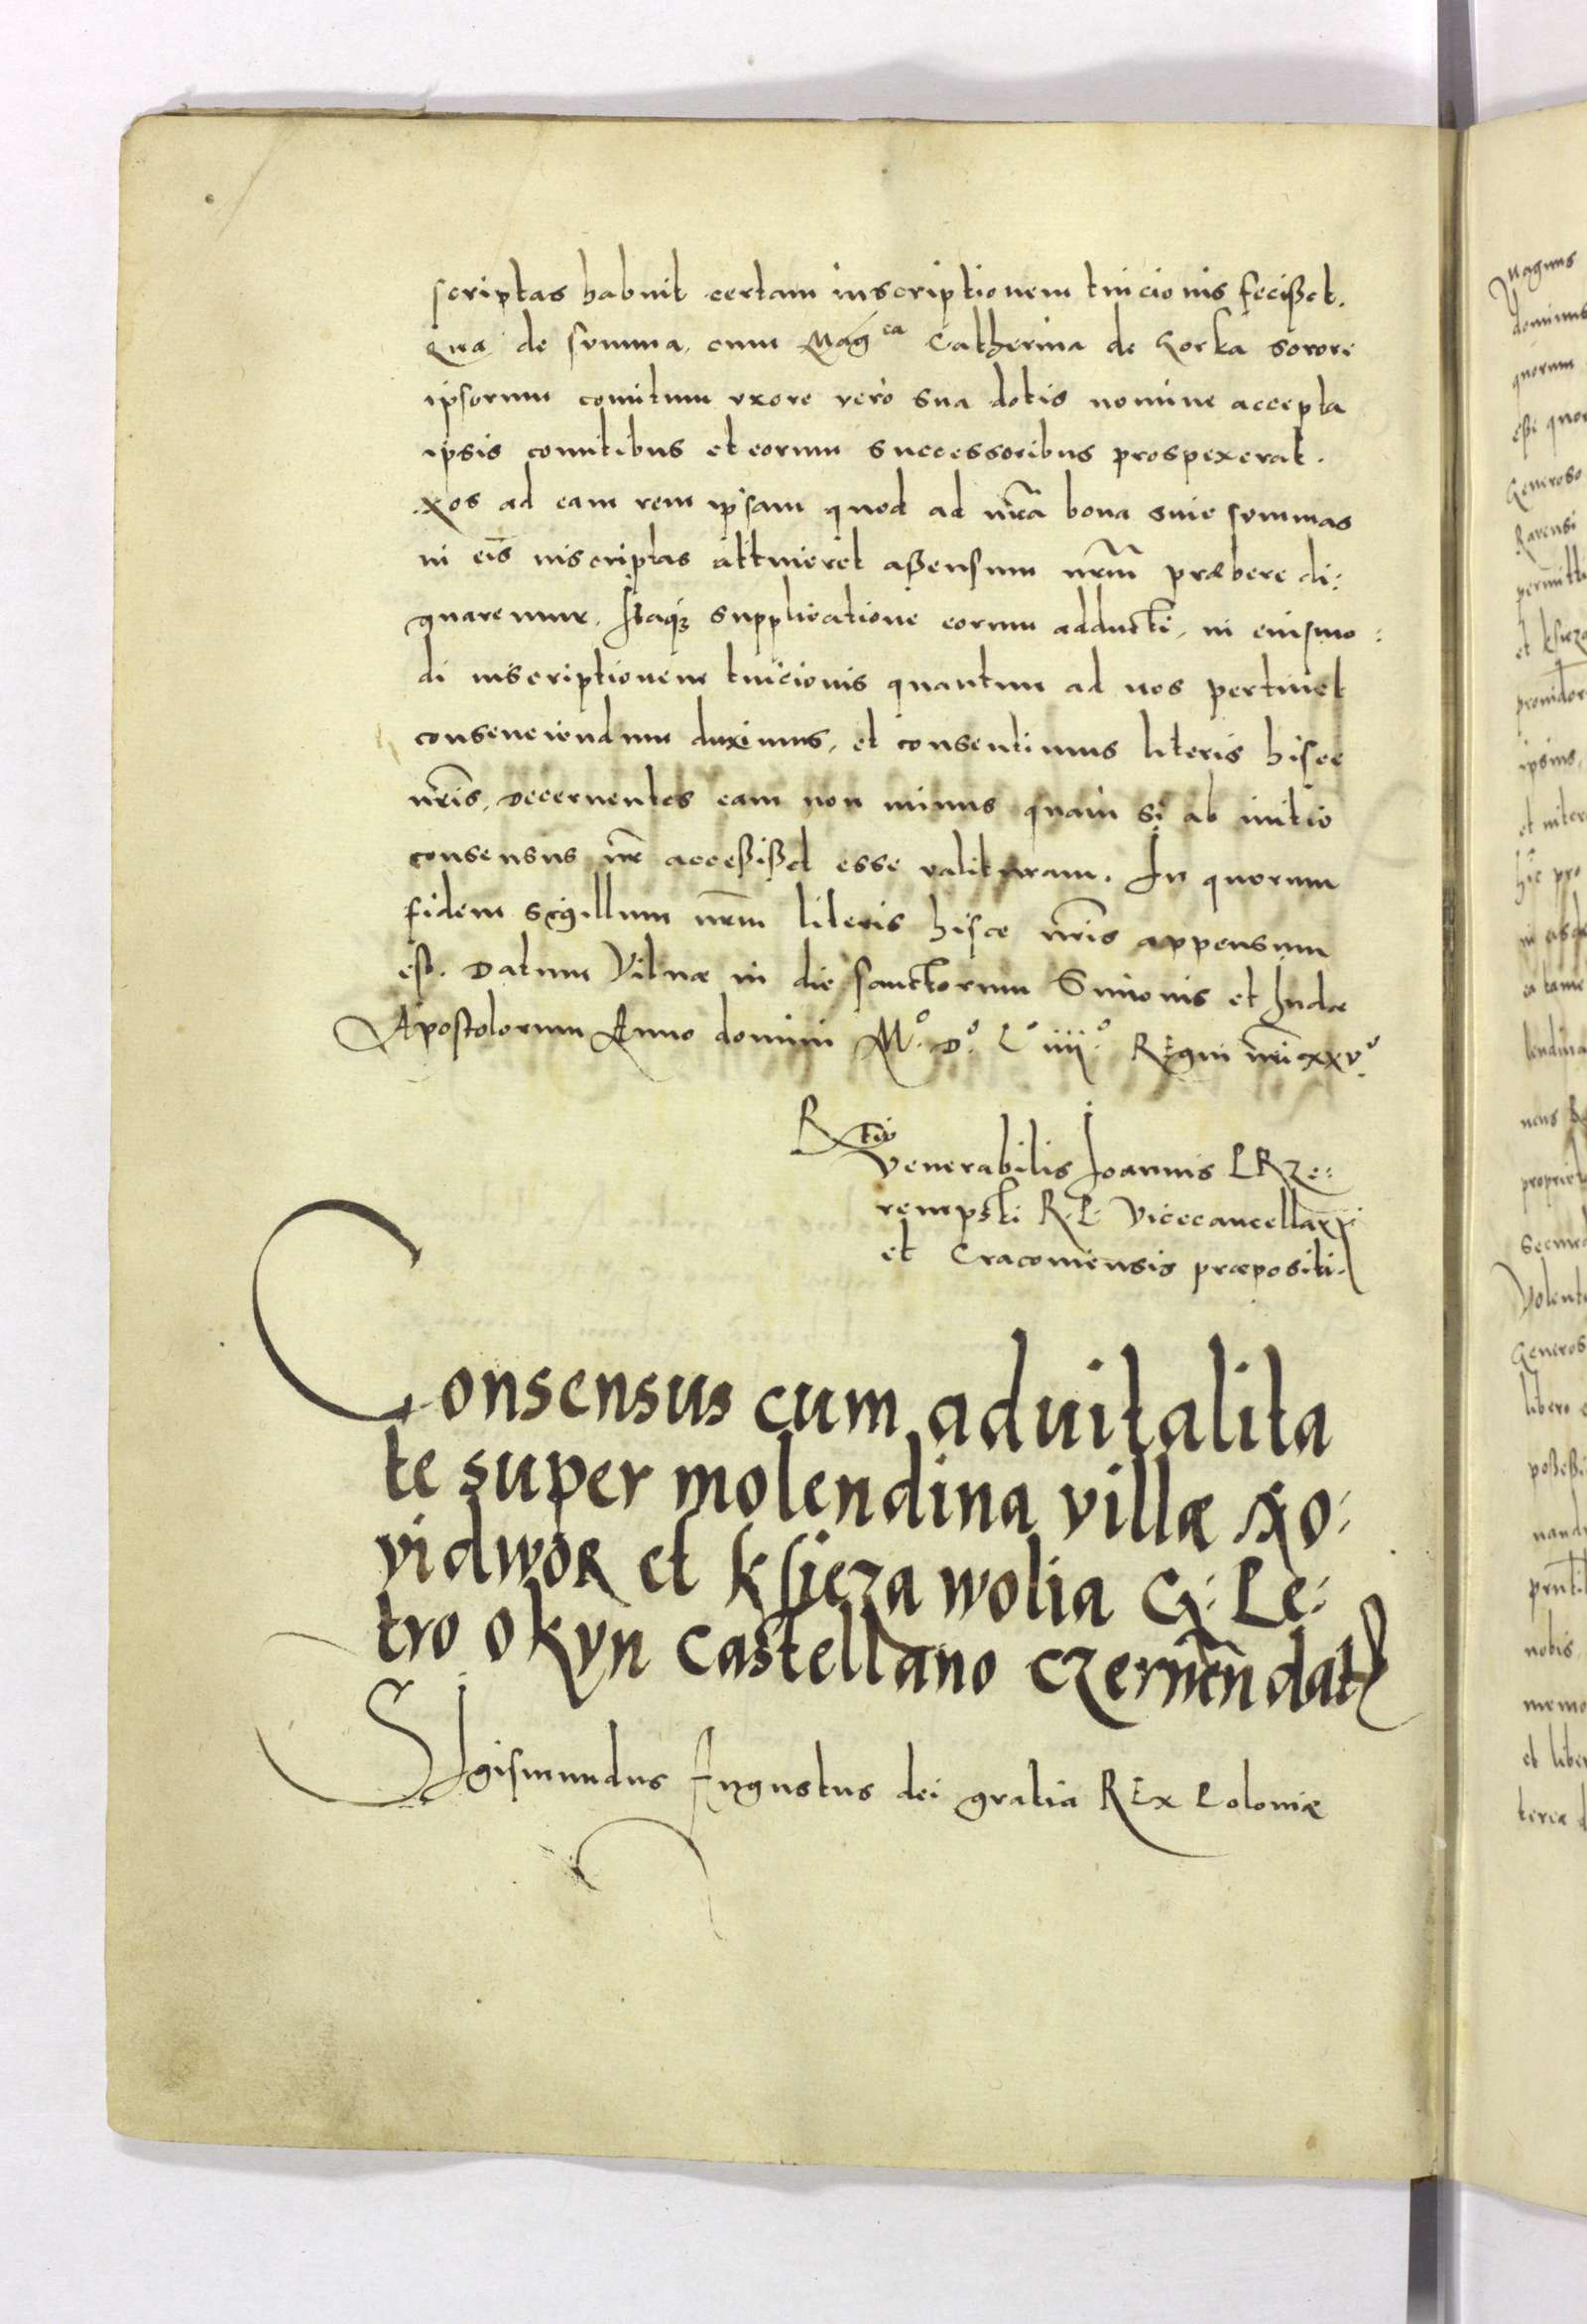 scriptas habuit certam inscriptionem tuicionis fecißet.
Qua de summa, cum Mag^ca Catherina de Gorka sorore
ipsorum comitum uxore vero sua dotis nomine accepta
ipsis comitibus et eorum successoribus prospexerat.
Nos ad eam rem ipsam quod ad nr̃a bona siue summas
in eis inscriptas attineret aßensum nr̃m præbere di:
gnaremur. Itaq₃ supplicatione eorum adducti, in eiusmo:
di inscriptionem tuicionis quantum ad nos pertinet
consenciendum duximus, et consentimus literis hisce
nr̃is, decernentes eam non minus quam si ab initio
consensus nr̃ acceßißet esse valituram. In quorum
fidem Sigillum nr̃m literis hisce nr̃is appensum
est. Datum Vilnæ in die sanctorum Simonis et Iudæ
Apostolorum Anno domini M.° D.° L° iiii.° Regni nr̃i xxv.°
R^tio
Venerabilis Joannis PRze:
rempski R. P. Vicecancellarii
et Cracouiensis præpositi.
Consensus cum aduitalita
te super molendina villæ No:
vidwor et ksieza wolia G: Pe:
tro okyn castellano czernen̄ dat^r
SIgismundus Augustus dei gratia REx Poloniæ
Magnus
dominus
quorum
eße quor
Generoso
Rauensi
permitt
et ksieza
ipsius,
et
hic pro
lendina
nens
propriet
Secund
Volent
Generos
libero
poßeßi
nand
nobis
memo
et liber